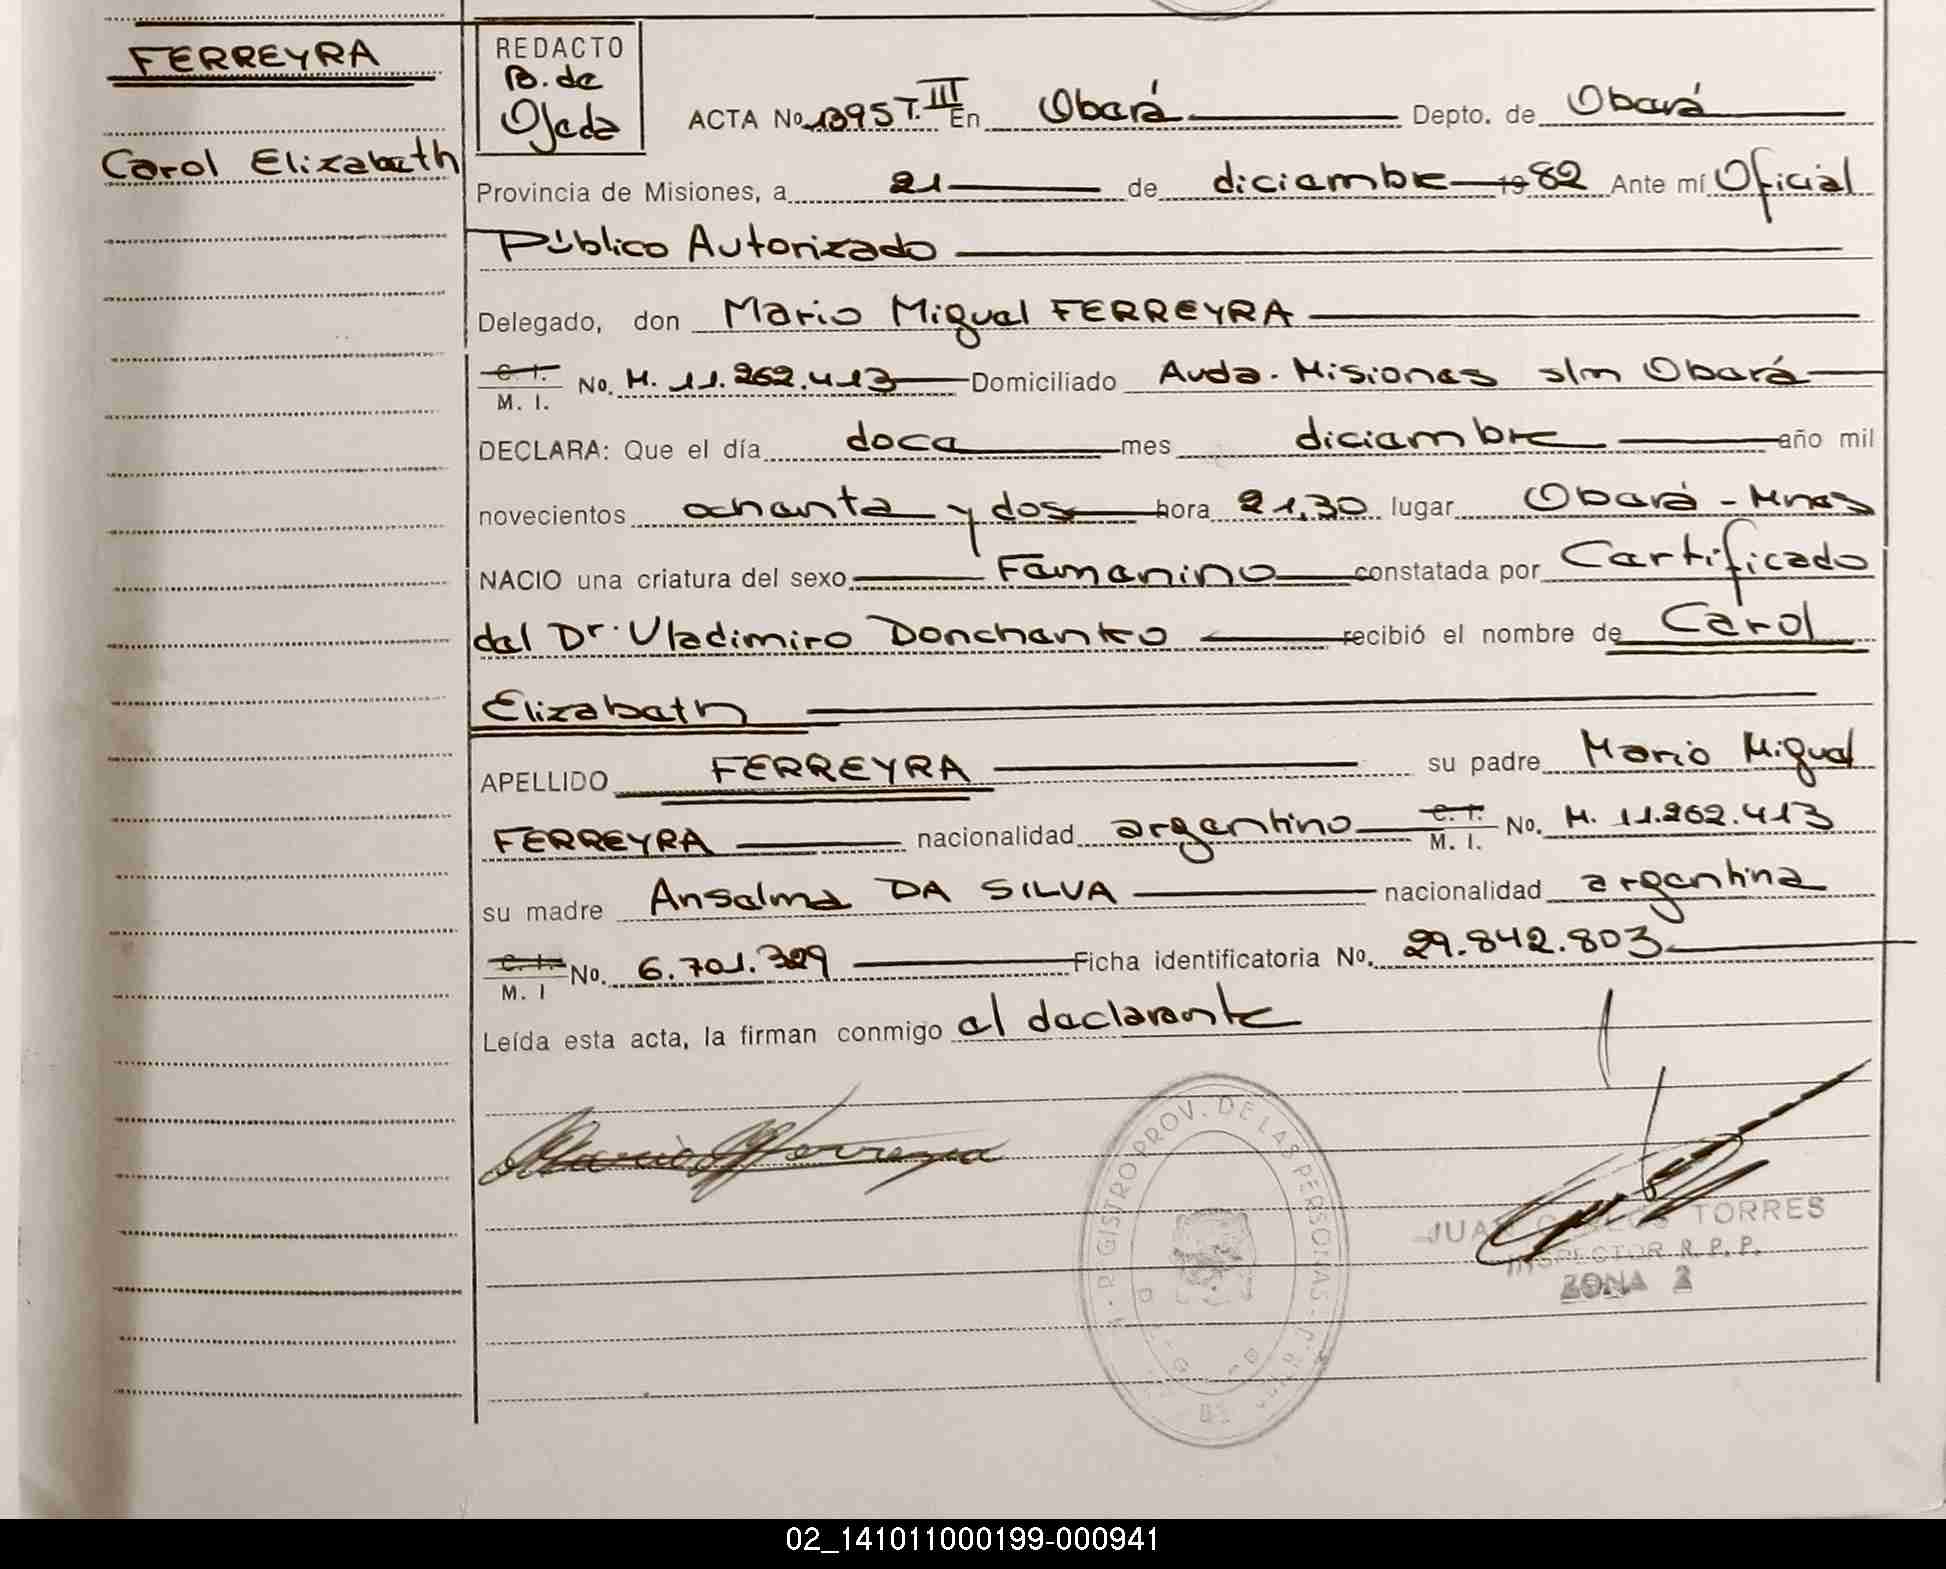 FERREYRA
Carol Elizabeth
REDACTO
B. de
Ojeda
ACTA No. 1395 T. III En Oberá Depto. de Oberá
Provincia de Misiones, a 21 de diciembre 1982 Ante mí Oficial
Público Autorizado
Delegado, don Mario Miguel FERREYRA
C. I. M. I. No. M. 11.262.413 Domiciliado Avda. Misiones s/n Oberá
DECLARA: Que el día doce mes diciembre año mil
novecientos ochenta y dos hora 21,30 lugar Oberá - Mnes
NACIO una criatura del sexo Femenino constatada por Certificado
del Dr. Vladimiro Donchenko recibió el nombre de Carol
Elizabeth
APELLIDO FERREYRA su padre Mario Miguel
FERREYRA nacionalidad argentino C. I. M. I. No. M. 11.262.413
su madre Anselma DA SILVA nacionalidad argentina
C. I. M. I No. 6.701.329 Ficha identificatoria No. 29.842.803
Leída esta acta, la firman conmigo el declarante
Mario M Ferreyra
REGISTRO PROV. DE LAS PERSONAS
JUAN CARLOS TORRES
INSPECTOR R. P. P.
ZONA 2
02_141011000199-000941